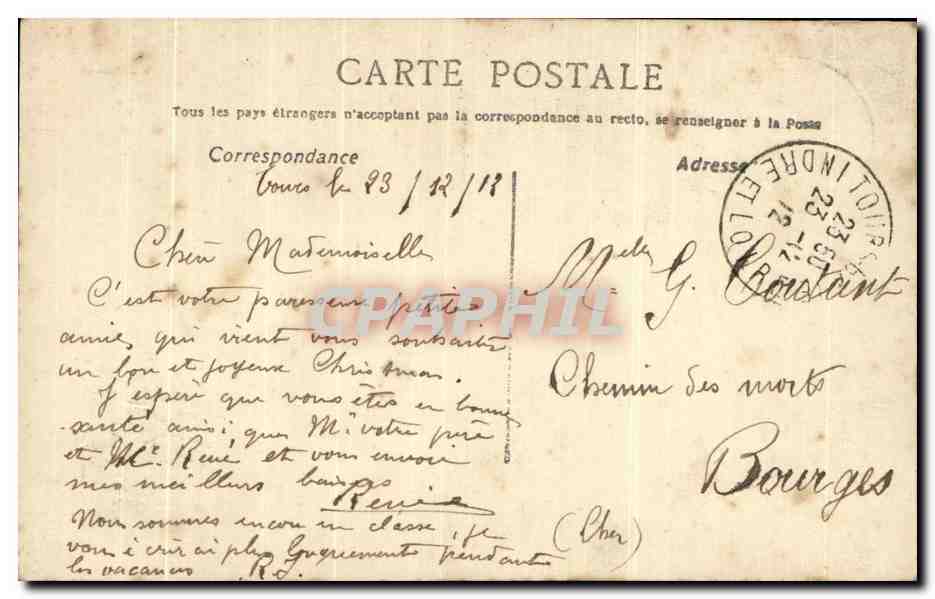 CARTE POSTALE
Tous les pays étrangers n'acceptant pas la correspondance au recto, se renseigner à la Poste
Correspondance
Adresse
Tours le 23/12/12
Chère Mademoiselle
C'est votre paresseuse petite
amie qui vient vous souhaiter
un bon et joyeux Christmas.
J'espère que vous êtes en bonne
santé ainsi que Mr votre père
et Mr René et vous envoie
mes meilleurs baisers
Renée
Nous sommes encore en classe, je
vous écrirai plus longuement pendant
les vacances R.
Melle G. Coutant
Chemin des morts
Bourges
(Cher)
TOURS
INDRE ET LOIRE
23 -12
23 12
CPAPHIL